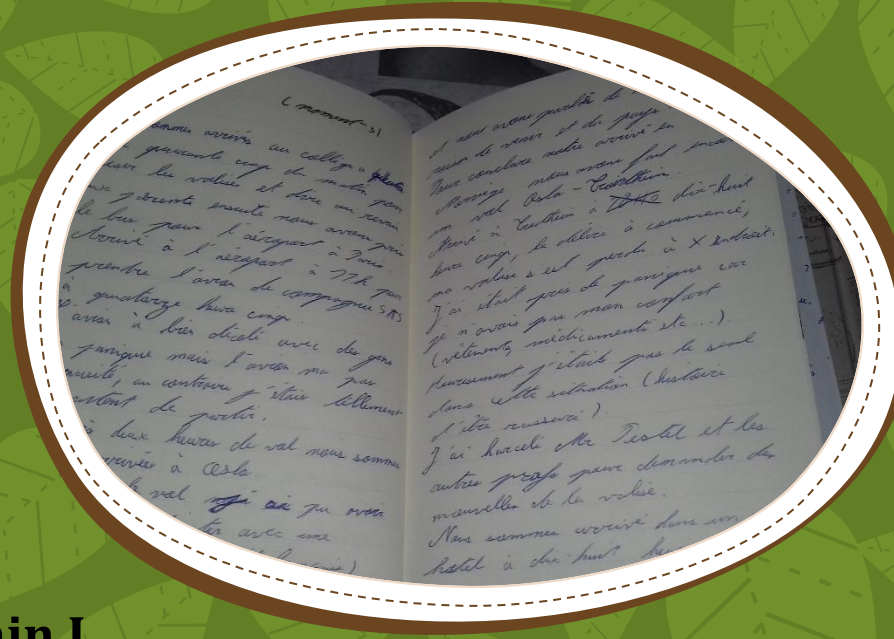 ( moment-s)
sommes arrivés au collège a quatre
quarante cinq du matin pour
les valises et dire au revoir
parents ensuite nous avons pris
le bus pour l'aéroport à Paris.
Arrivé à l'aéroport à 11h pour
prendre l'avion de compagnie SAS
à quatorze heure cinq.
avion à bien décolé avec des gens
panique mais l'avion ma pas
au contraire j'étais tellement
de partir.
deux heures de vol nous sommes
arrivés à Oslo
le vol j'ai pu avoir
avec une
et nous avons parlés de
raison de venir et du pays
Pour conclure notre arrivé en
Norvège nous avons fait encore
un vol Oslo - Trontheim.
Arrivé à Trontheim à dix-huit
heure cinq, le délire à commencé,
ma valise s'est perdu à X endroit.
J'ai était pris de panique car
je n'avais pas mon confort
(vêtements, médicaments etc...).
Heureusement j'étais pas le seul
dans cette situation (histoire
d'être rassuré).
J'ai harcelé Mr Testel et les
autres profs pour demander des
nouvelles de la valise.
Nous sommes arrivé dans un
hotel à dix-huit
in L